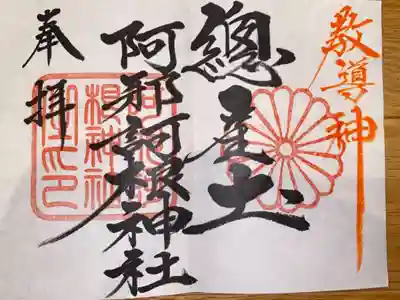 教導神
總産土
阿邪訶根神社
奉拝